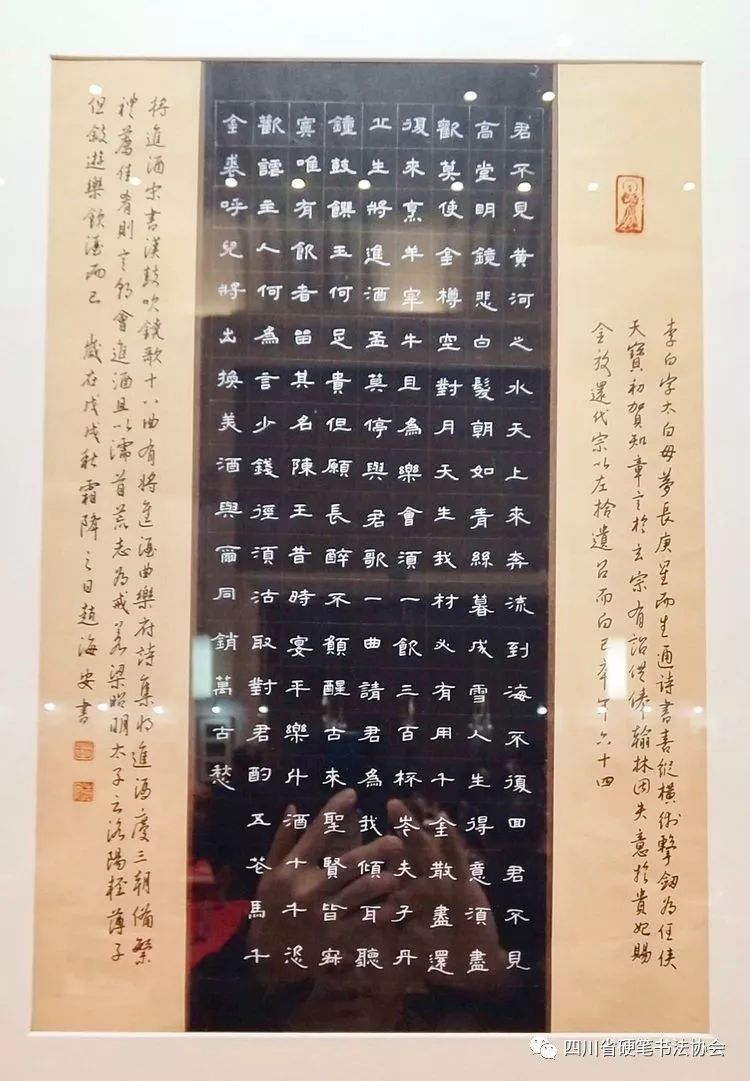 李白字太白母夢長庚星而生通詩書喜縱横術擊劍為任侠
天寶初賀知章言於玄宗有詔供俸翰林因失意於貴妃賜
金放還代宗以左拾遺召而白已卒年六十四
君不見黄河之水天上來奔流到海不復回君不見
高堂明鏡悲白髮朝如青絲暮成雪人生得意須盡
歡莫使金樽空對月天生我材必有用千金散盡還
復來烹羊宰牛且為樂會須一飲三百杯岑夫子丹
丘生將進酒盃莫停與君歌一曲請君為我傾耳聽
鐘鼓饌玉何足貴但願長醉不願醒古來聖賢皆寂
寞唯有飲者留其名陳王昔時宴平樂斗酒十千恣
歡謔主人何為言少錢徑須沽取對君酌五花馬千
金裘呼兒將出換美酒與爾同銷萬古愁
將進酒宋書漢鼓吹鐃歌十八曲有將進酒曲樂府詩集將進酒慶三朝備繁
禮薦佳肴則言朝會進酒且以濡首荒志為戒若梁昭明太子云洛陽輕薄子
但敍遊樂飲酒而已 歲在戊戌秋霜降之日趙海安書
四川省硬笔书法协会